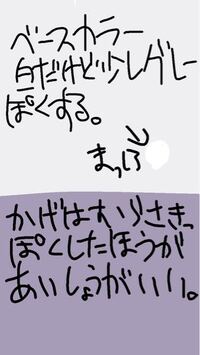 ベースカラー
白だけど少しグレー
ぽくする。
まっしろ
かげはむらさきっ
ぽくしたほうが
あいしょうがいい。